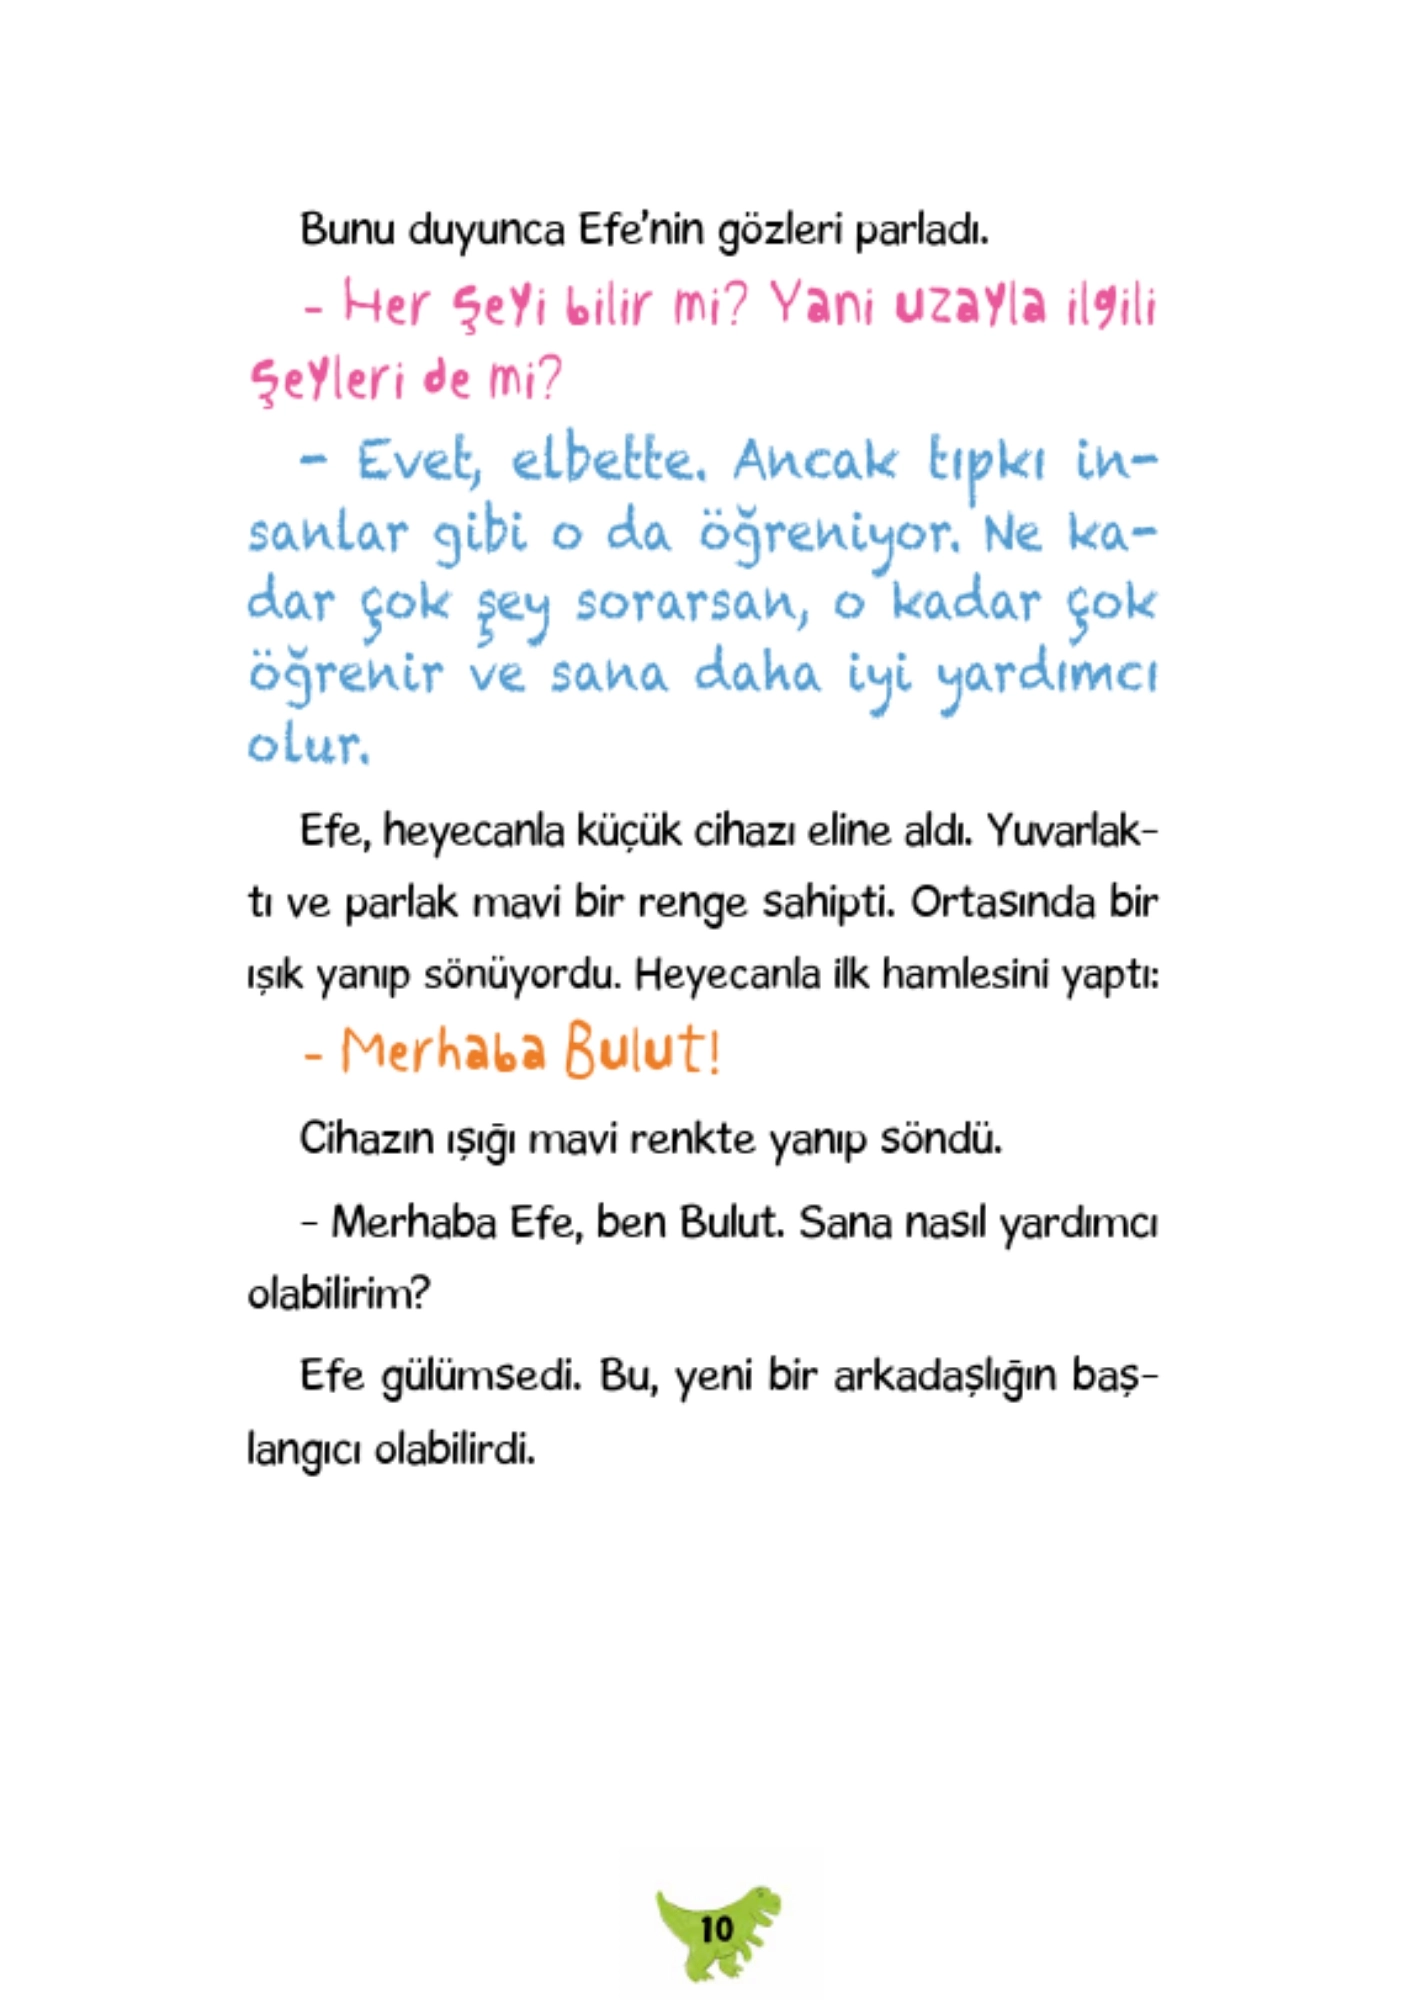 Bunu duyunca Efe’nin gözleri parladı.
- Her şeyi bilir mi? Yani uzayla ilgili
şeyleri de mi?
- Evet, elbette. Ancak tıpkı in-
sanlar gibi o da öğreniyor. Ne ka-
dar çok şey sorarsan, o kadar çok
öğrenir ve sana daha iyi yardımcı
olur.
Efe, heyecanla küçük cihazı eline aldı. Yuvarlak-
tı ve parlak mavi bir renge sahipti. Ortasında bir
ışık yanıp sönüyordu. Heyecanla ilk hamlesini yaptı:
- Merhaba Bulut!
Cihazın ışığı mavi renkte yanıp söndü.
- Merhaba Efe, ben Bulut. Sana nasıl yardımcı
olabilirim?
Efe gülümsedi. Bu, yeni bir arkadaşlığın baş-
langıcı olabilirdi.
10